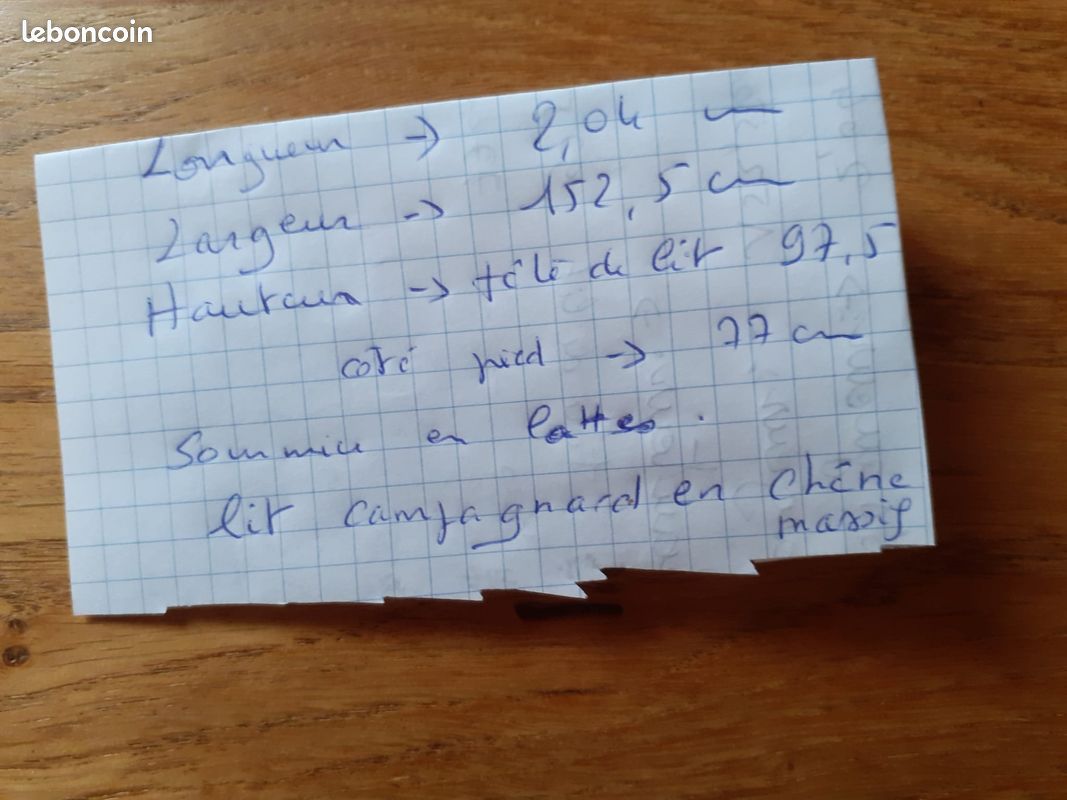 leboncoin
Longueur → 2,04 cm
Largeur → 152,5 cm
Hauteur → tête de lit 97,5
coté pied → 77 cm
Sommier en lattes.
lit campagnard en chêne
massif